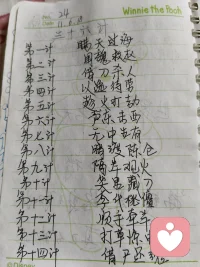 Winnie the Pooh
24
三十六计
第一计 瞒天过海
第二计 围魏救赵
第三计 借刀杀人
第四计 以逸待劳
第五计 趁火打劫
第六计 声东击西
第七计 无中生有
第八计 暗渡陈仓
第九计 隔岸观火
第十计 笑里藏刀
第十一计 李代桃僵
第十二计 顺手牵羊
第十三计 打草惊
第十四计 借尸还